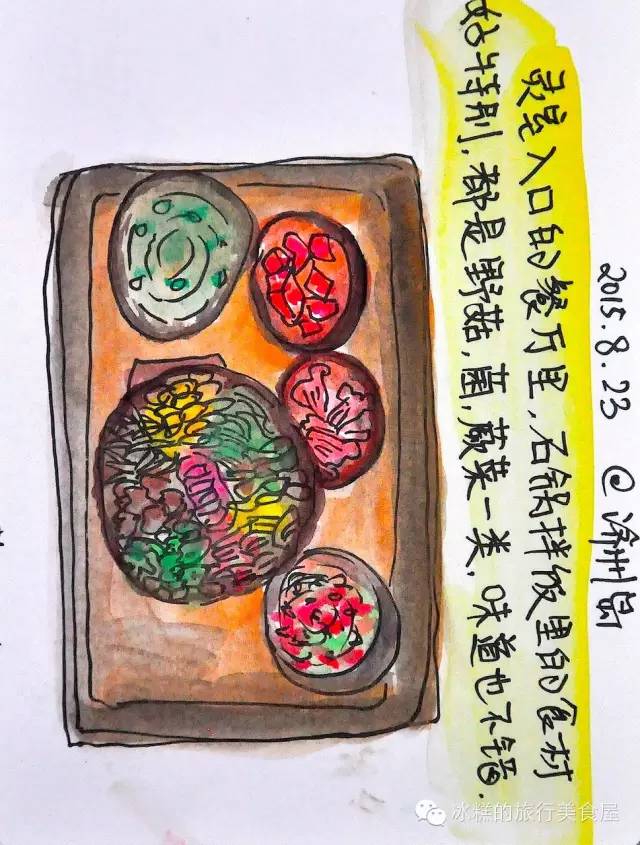 2015.8.23 @济州岛
灵室入口的餐厅里,石锅拌饭里的食材
好特别,都是野菇,菌,蕨菜一类,味道也不错.
冰糕的旅行美食屋